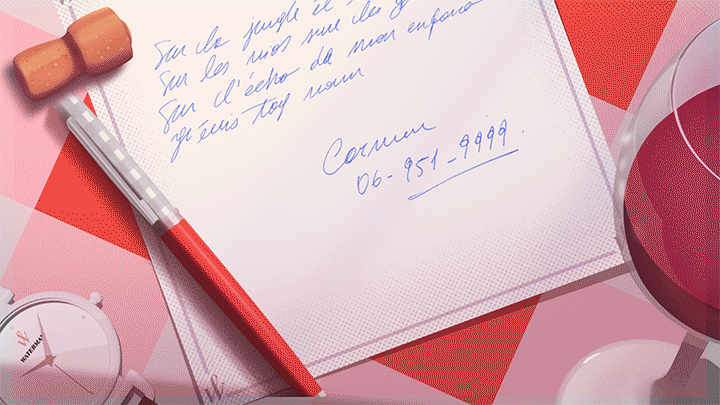 Sur la jungle et
Sur les nids sur les
Sur l'écho de mon enfance
j'écris ton nom
06-951-9999.
WATERMAN